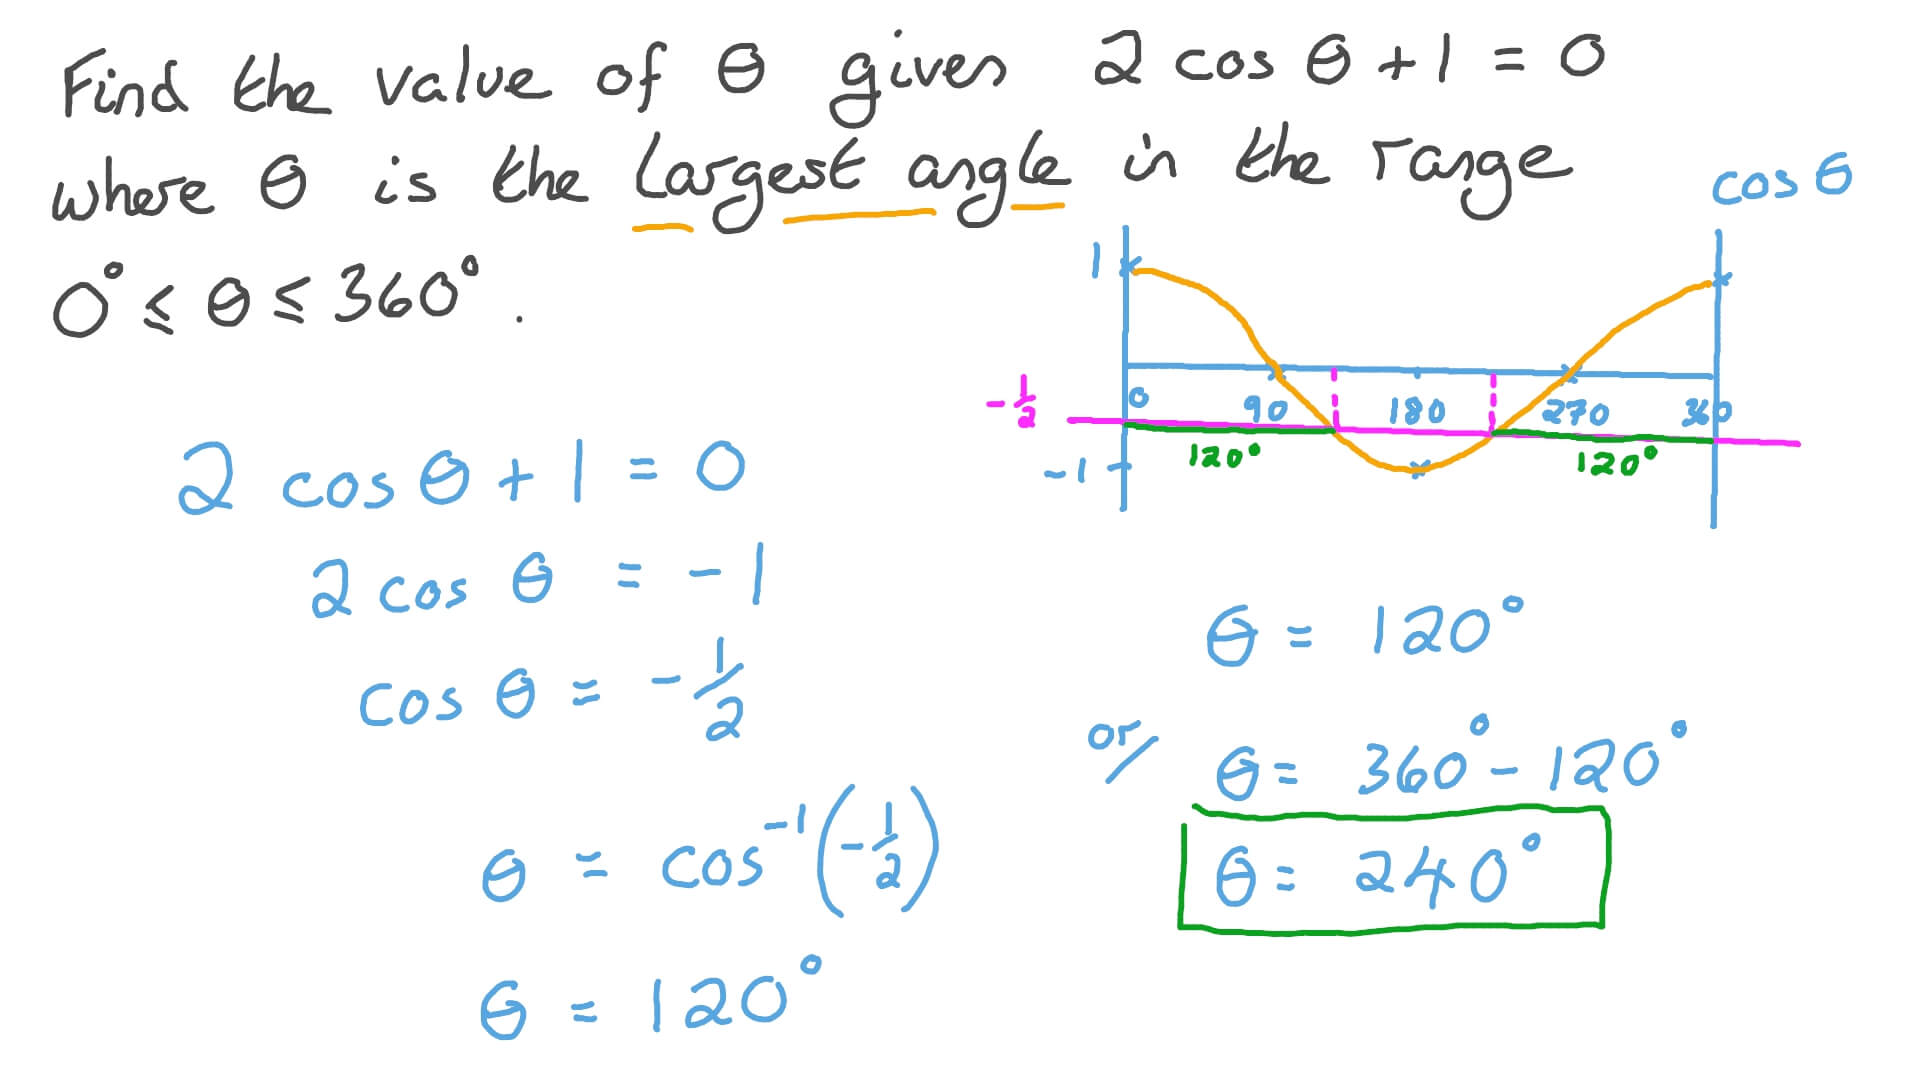 Find the value of θ given 2 cos θ + 1 = 0
where θ is the largest angle in the range
0° ≤ θ ≤ 360°.
cos θ
1
0 90 180 270 360
-1/2
-1
120° 120°
2 cos θ + 1 = 0
2 cos θ = -1
cos θ = -1/2
θ = cos⁻¹(-1/2)
θ = 120°
θ = 120°
or/ θ = 360° - 120°
θ = 240°